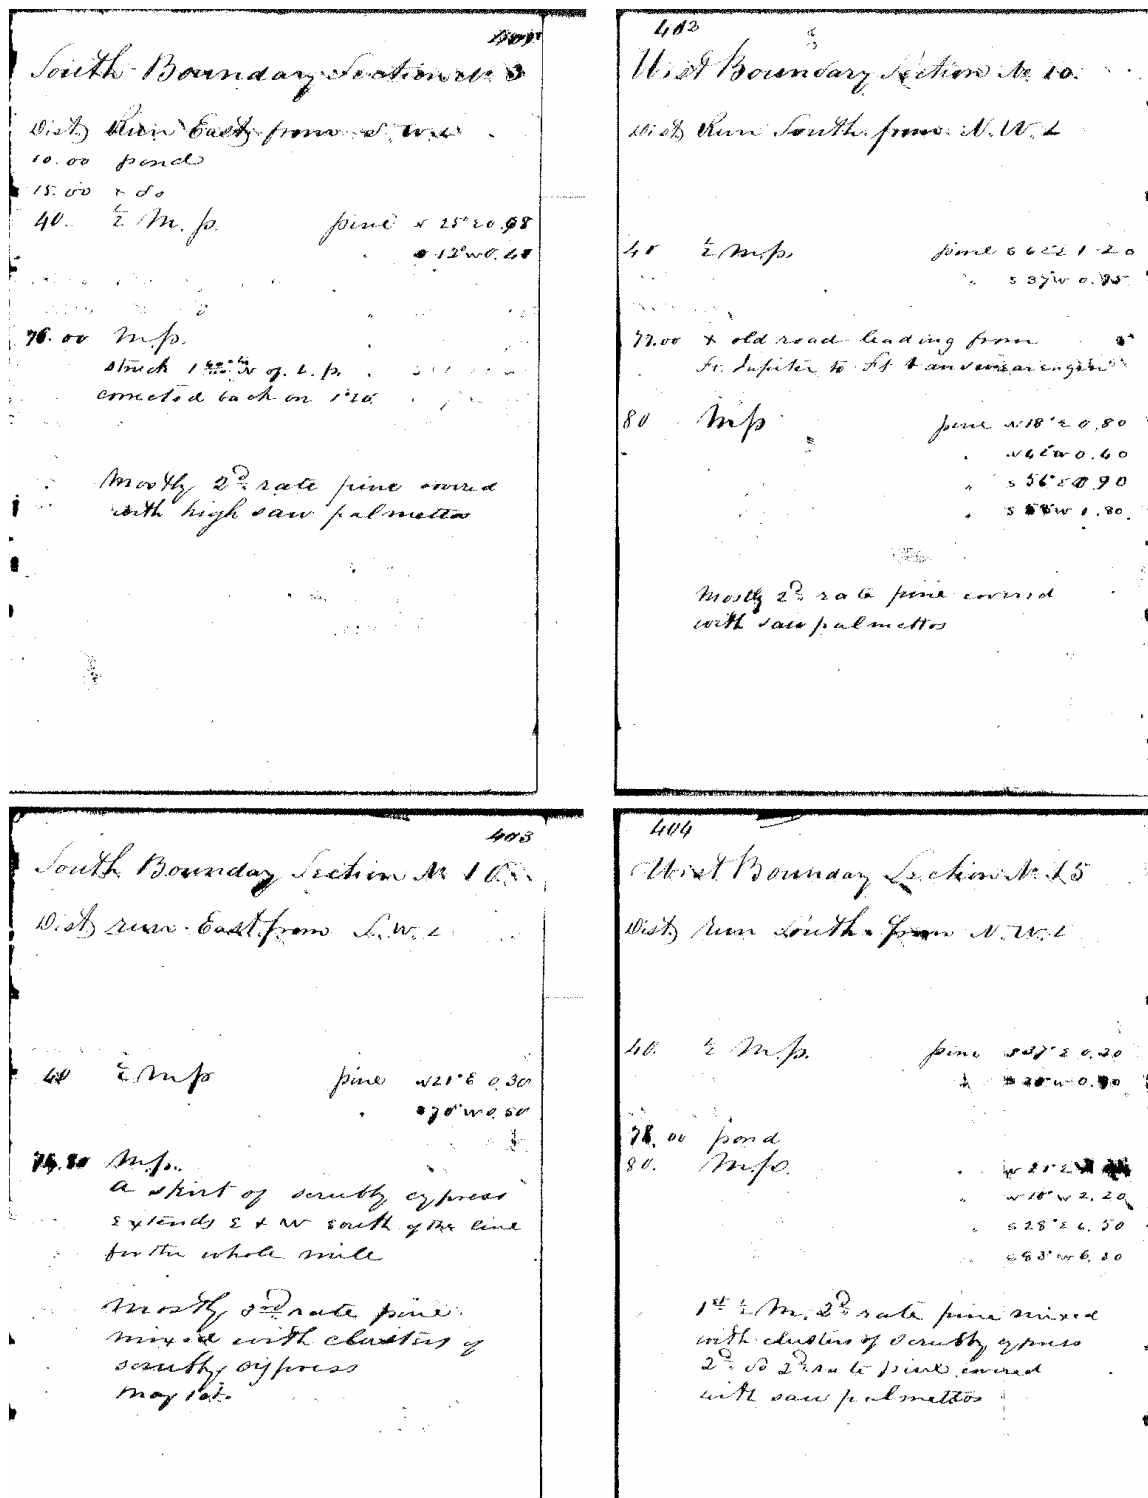 South Boundary Section No 3
Dist Run East from S. W. C
10.00 pond
15.00 x do
40. ½ M. p. pine N 25° E 0.68
" 12° W 0.40
76.00 M. p.
struck 1 N of C. p.
corrected back on 1°20'
Mostly 2nd rate pine covered
with high saw palmettos
402
West Boundary Section No 10.
Dist Run South from N. W. C
40 ½ M. p. pine S 62 E 1.20
" S 37 W 0.95
77.00 x old road leading from
Ft. Jupiter to Ft
80 M p pine N 18° E 0.80
" N 62 W 0.60
" S 56° E 0.90
" S W 1.80
Mostly 2nd rate pine covered
with saw palmettos
403
South Bounday Section No 10
Dist run East from S. W. C
40 ½ M p pine N 21° E 0.30
" 70° W 0.50
M. p.
A skirt of scrubby cypress
extends E & W south of the line
for the whole mile
Mostly 3rd rate pine
mixed with clusters of
scrubby cypress
May 1st.
404
West Bounday Section No 15
Dist run South from N. W. C
40. ½ M. p. pine S 37° E 0.20
78.00 pond
80. M. p. " N 21° E
" N 10° W 2.20
" S 28° E 6.50
" S 83° W 6.30
1st ½ M. 2nd rate pine mixed
with clusters of scrubby cypress
2nd do 2nd rate pine covered
with saw palmettos